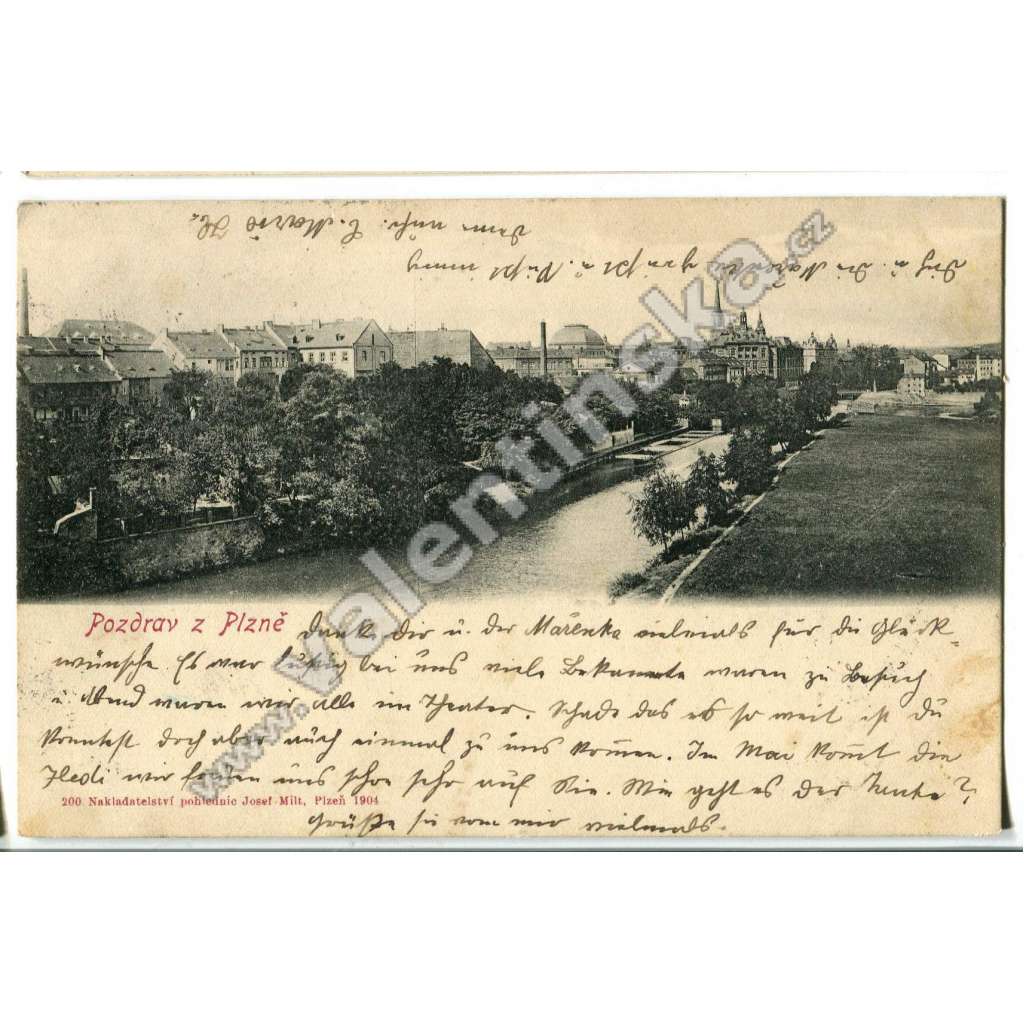 Pozdrav z Plzně
Dank dir u. der Mařenka vielmals für die Glück-
wünsche Es war lustig bei uns viele Bekannte waren zu Besuch
u. Abend waren wir alle im Theater. Schade das es so weit ist du
konntest doch aber auch einmal zu uns kommen. Im Mai kommt die
Hedi wir freuen uns schon sehr auf Sie. Wie geht es der Tante?
200 Nakladatelství pohlednic Josef Milt, Plzeň 1904
Grüße sie von mir vielmals.
Dich u. die Mařenka grüßt u. küßt innig
www.valentinska.cz